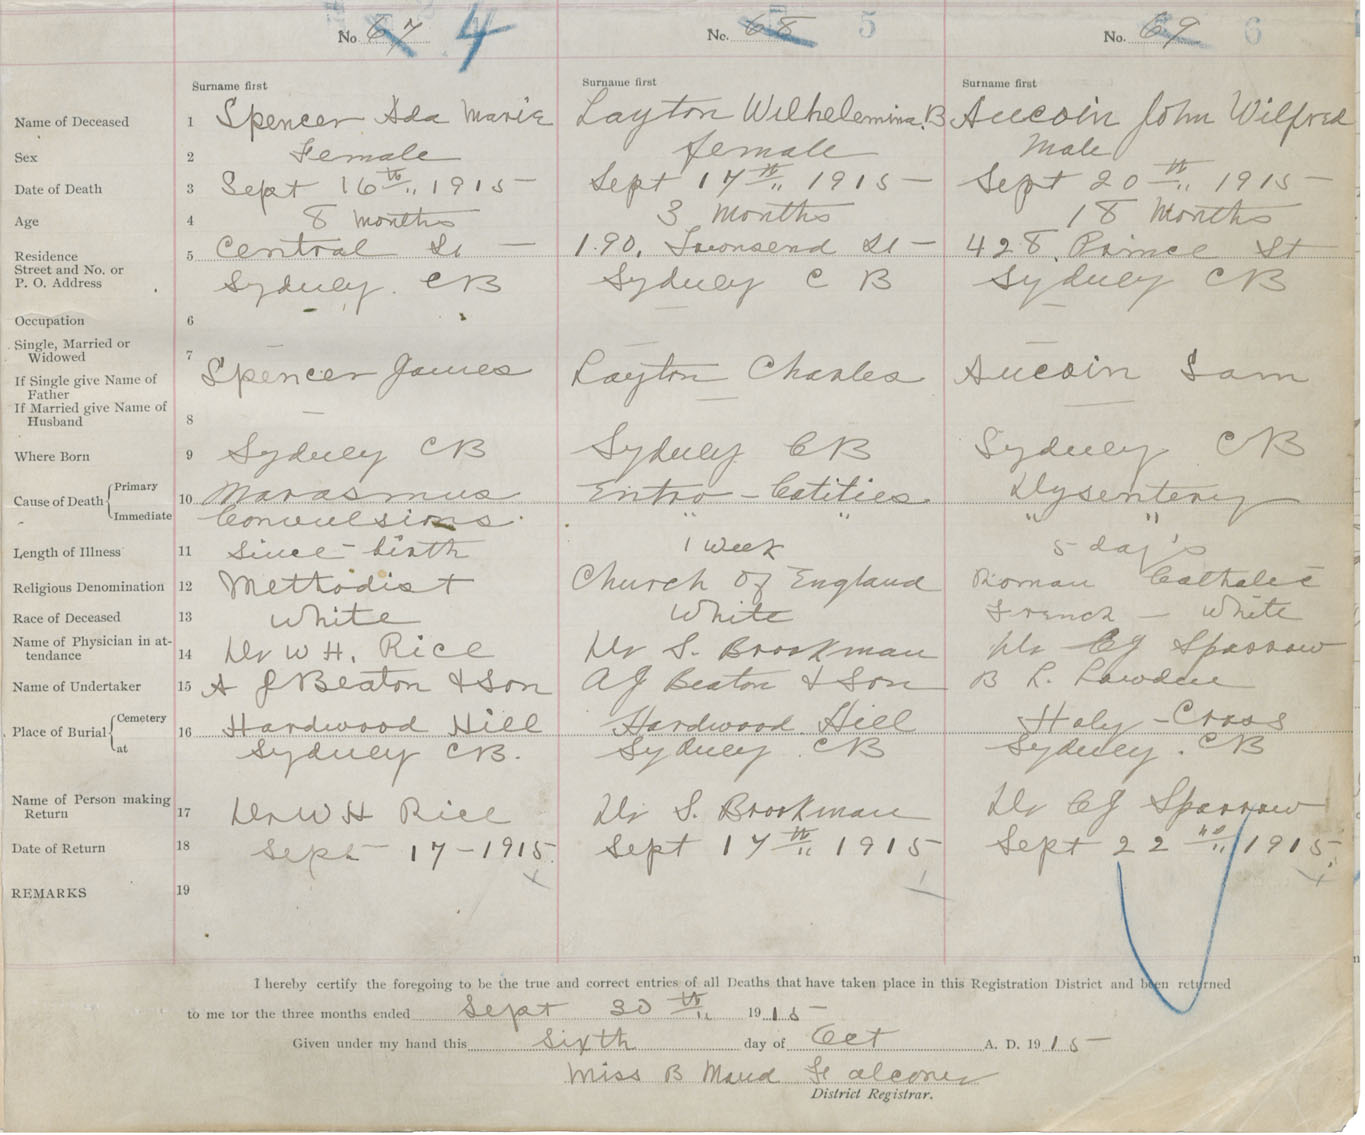 No. 67 4 No. 68 5 No. 69 6
Surname first Surname first Surname first
Name of Deceased 1 Spencer Ada Marie Layton Wilhelemina. B Aucoin John Wilfred
Sex 2 Female female Male
Date of Death 3 Sept 16th 1915 – Sept 17th 1915 – Sept 20th 1915 –
Age 4 8 months 3 Months 18 Months
Residence Street and No. or P. O. Address 5 Central St – 190. Townsend St – 428. Prince St
Sydney. CB Sydney C B Sydney CB
Occupation 6
Single, Married or Widowed 7
If Single give Name of Father Spencer James Layton Charles Aucoin Sam
If Married give Name of Husband 8
Where Born 9 Sydney CB Sydney CB Sydney CB
Cause of Death Primary 10 Marasmus Entro – Colities. Dysentery
Immediate Convulsions. " " " "
Length of Illness 11 Since – birth 1 week 5 day's
Religious Denomination 12 Methodist Church Of England Roman Catholic
Race of Deceased 13 White White French – White
Name of Physician in attendance 14 Dr W H. Rice Dr S. Brookman Dr CJ Sparrow
Name of Undertaker 15 A J Beaton & Son AJ Beaton & Son B L. Lowden
Place of Burial Cemetery 16 Hardwood Hill Hardwood Hill Holy – Cross
at Sydney CB. Sydney. CB Sydney. CB
Name of Person making Return 17 Dr W H Rice Dr S. Brookman Dr CJ Sparrow
Date of Return 18 Sept – 17 – 1915 Sept 17th 1915 Sept 22nd 1915
REMARKS 19
I hereby certify the foregoing to be the true and correct entries of all Deaths that have taken place in this Registration District and been returned
to me for the three months ended Sept 30th 1915 –
Given under my hand this sixth day of Oct A. D. 1915 –
Miss B Maud Falconer
District Registrar.